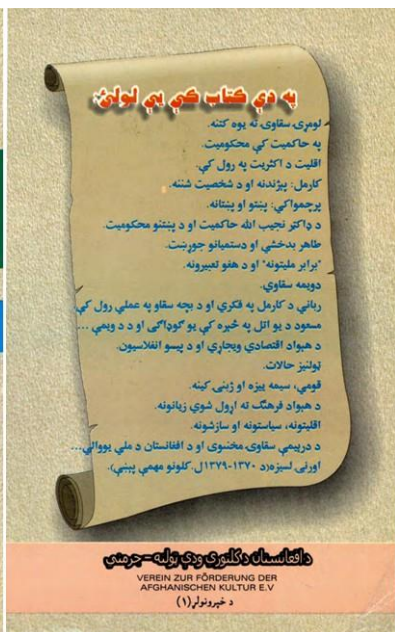 په دې کتاب کې يې لولئ:
لومړۍ سقاوۍ ته يوه کتنه.
په حاکميت کې محکوميت.
اقليت د اکثريت په رول کې.
کارمل: پېژندنه او د شخصيت شننه.
پرچمواکي: پښتو او پښتانه.
د ډاکټر نجيب الله حاکميت او د پښتنو محکوميت.
طاهر بدخشي او دستميانو جوړښت.
"برابر مليتونه" او د هغو تعبيرونه.
دويمه سقاوي.
رباني د کارمل په فکري او د بچه سقاو په عملي رول کې
مسعود د يو اتل په څېره کې يو ګوډاګی او د د ويمې ...
د هېواد اقتصادي ويجاړي او د پيسو انفلاسيون.
ټولنيز حالات.
قومي، سيمه ييزه او ژبنۍ کينه.
د هېواد فرهنګ ته اړول شوي زيانونه.
اقليتونه، سياستونه او سازشونه.
د درېيمې سقاوۍ مخنيوی او د افغانستان د ملي يووالي...
اورنۍ لسيزه(د ۱۳۷۰-۱۳۷۹ل. کلونو مهمې پېښې).
د افغانستان د کلتوري ودې ټولنه - جرمني
VEREIN ZUR FÖRDERUNG DER
AFGHANISCHEN KULTUR E.V
د خپرونولړ(۱)